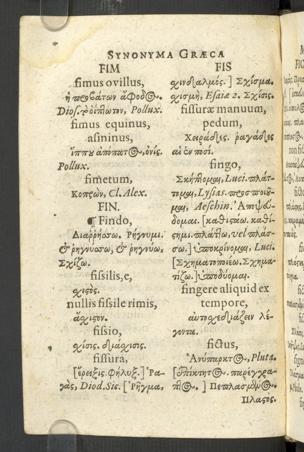 SYNONYMA GRÆCA
FIM
fimus ovillus,
ἡ προβάτων ἄφοδος.
Diosc. Pollux.
fimus equinus,
asininus,
ἵππου ἀπόπατος, ὄνις.
Pollux.
fimetum,
Κοπρών, Cl. Alex.
FIN.
¶ Findo,
Διαρρήσσω. Ῥήγνυμι.
& ῥηγνύω,
Σχίζω.
fissilis, e,
χιςός.
nullis fissile rimis,
ἄχισον.
fissio,
χίσις. διάχισις.
fissura,
Ῥα-
γὰς, Diod. Sic. [Ῥῆγμα,
FIS
Σχίσμα.
χισμὴ, Esaiæ 2. Σχίσις.
fissuræ manuum,
pedum,
Χειράδες. ραγάδες
αἱ ἐν ποσί.
fingo,
Luci. πλάτ-
τομαι, Lysias.
Aeschin.
δομαι. [καθιςάω. καθί-
ςημι. πλάθω, vel πλάσ-
σω.] ὑποκρίνομαι, Luci.
[Σχηματοποιέω. Σχημα-
τίζω. ὑποδύομαι.
fingere aliquid ex
tempore,
αὐτοχεδιάζειν λέ-
γοντα.
fictus,
Ἀνύπαρκτος, Pluta.
παρέγγρα-
πτος.] Πεπλασμένος.
Πλαςός.